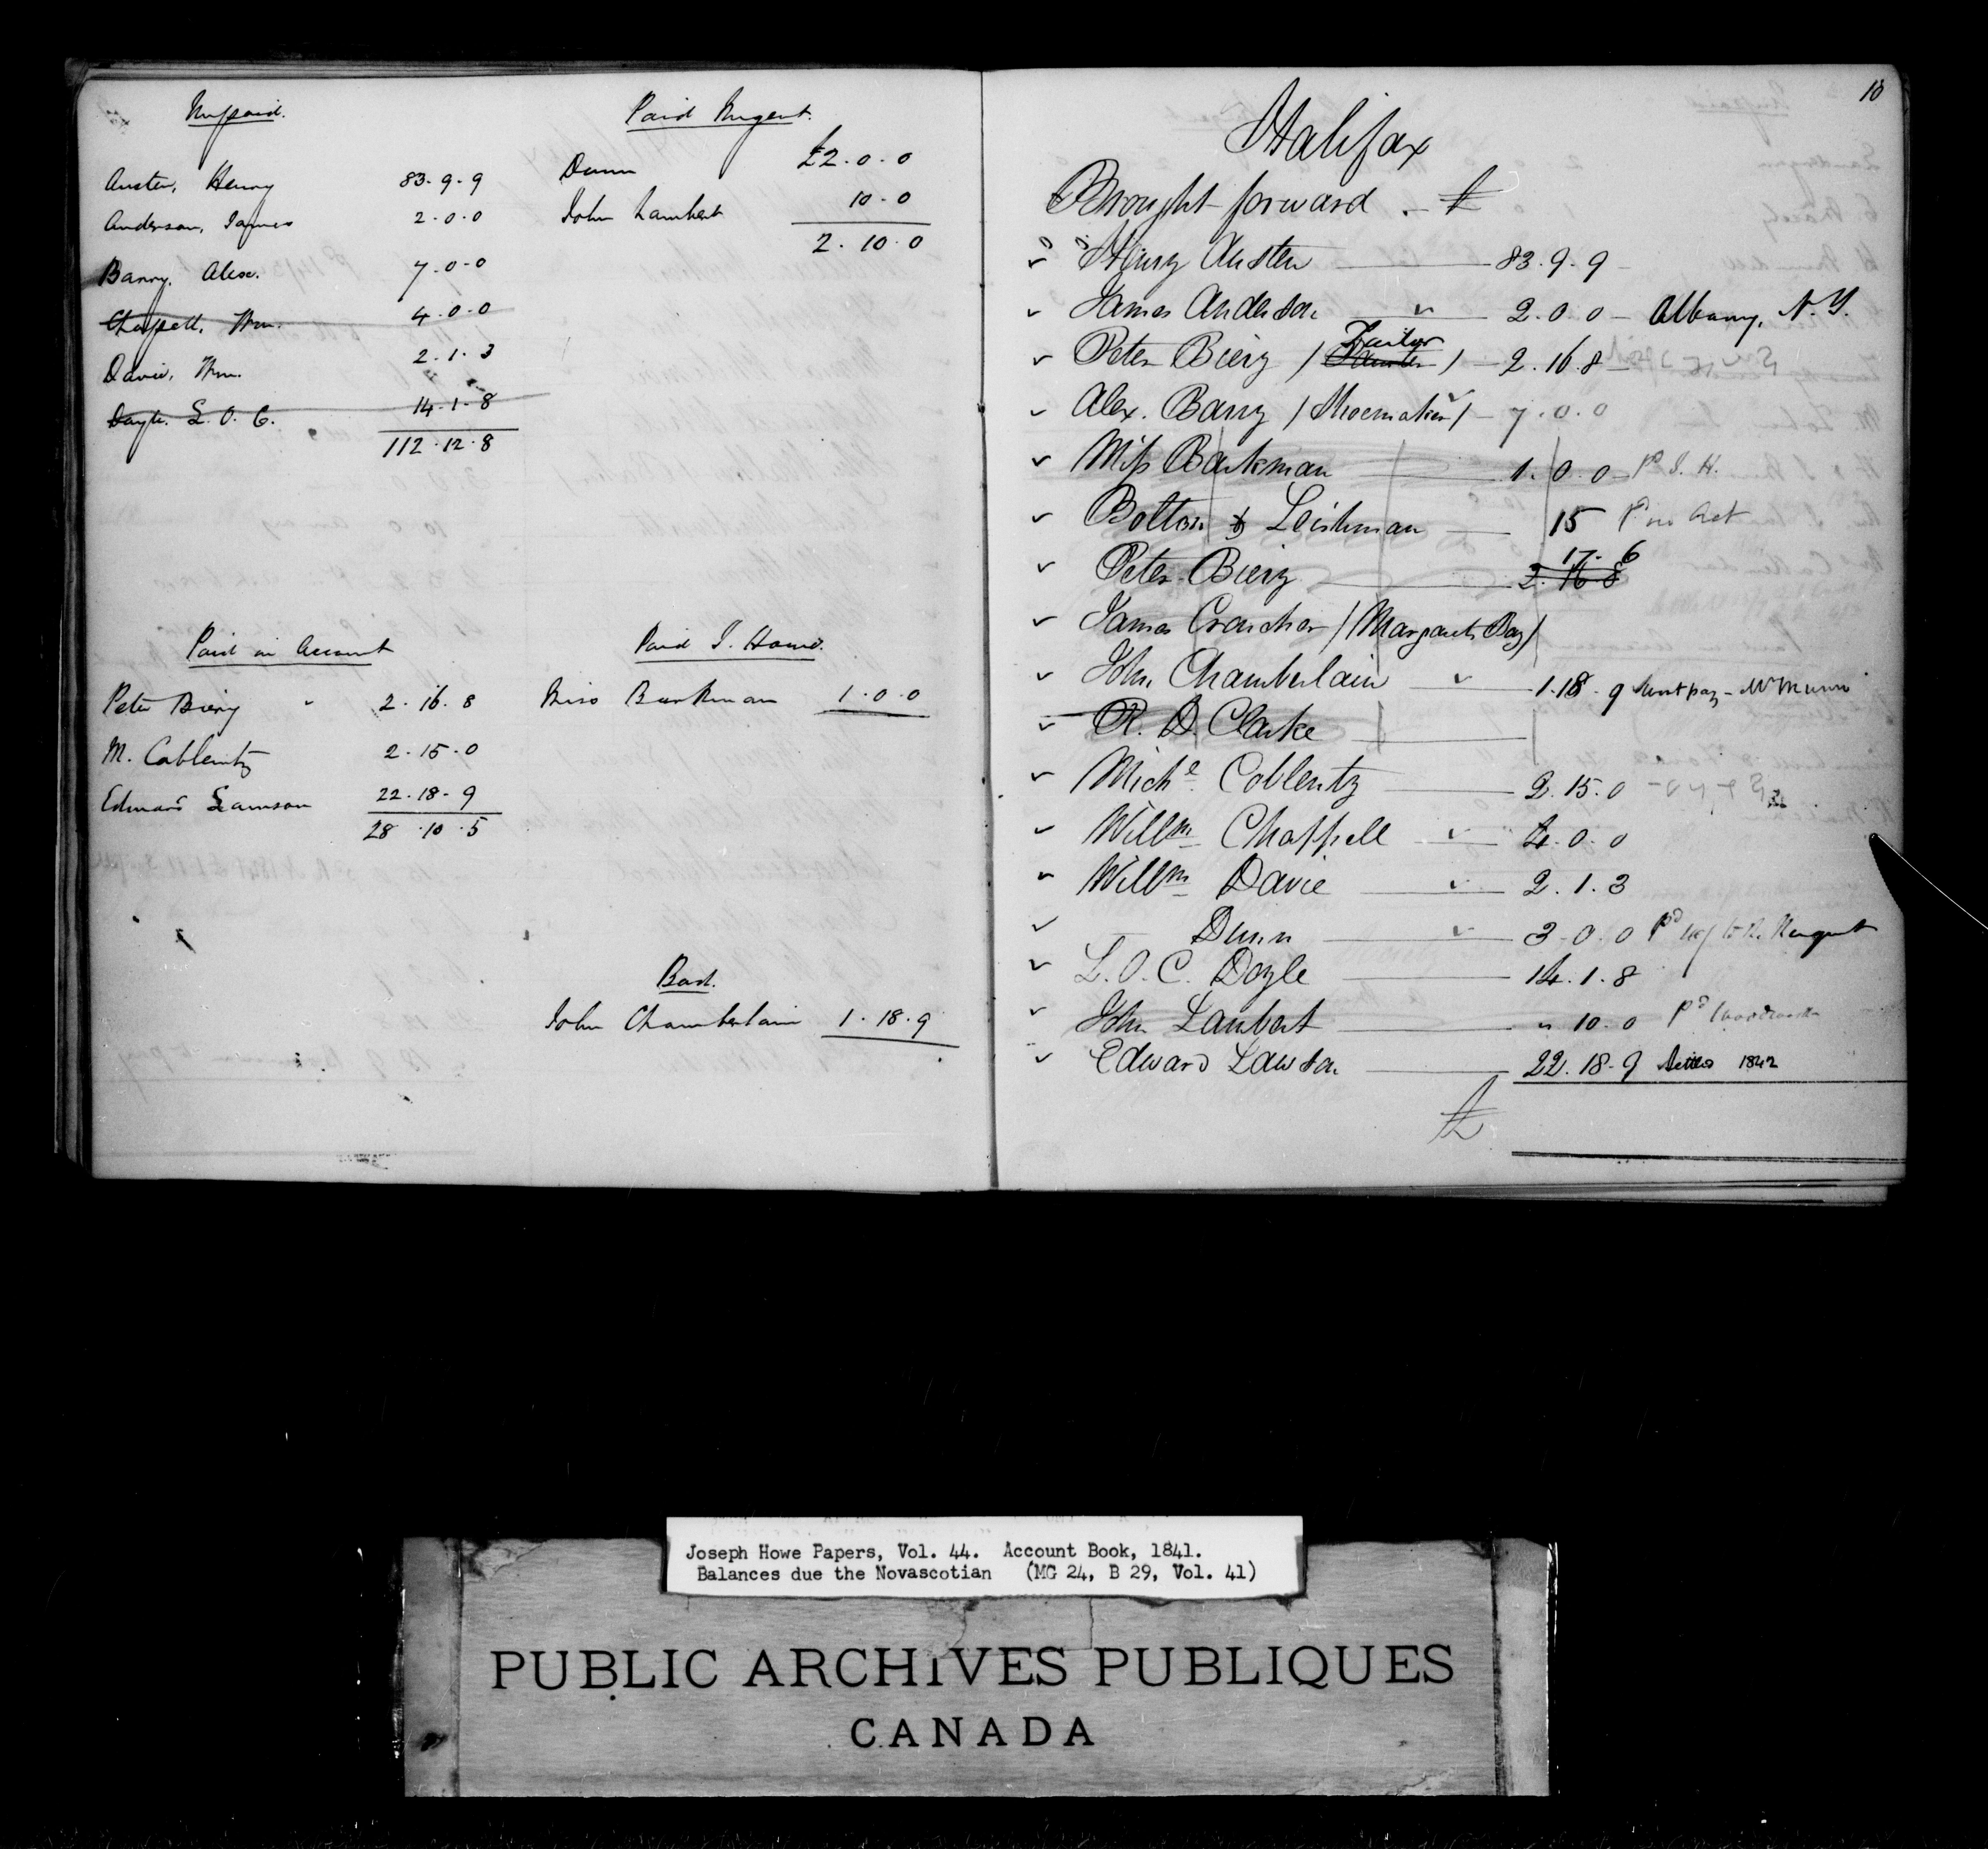 Unpaid.
Austen, Henry 83-9-9
Anderson, James 2-0-0
Barry, Alex. 7-0-0
Chappell, Wm. 4-0-0
Davie, Wm. 2-1-3
Doyle. L. O. C. 14-1-8
112.12.8
Paid Nugent.
Dunn £2.0.0
John Lambert 10-0
2.10.0
Paid on Account
Peter Biery " 2.16.8
M. Coblentz 2.15.0
Edward Lawson 22.18-9
28.10.5
Paid J. Howe.
Miss Barkman 1.0.0
Bad.
John Chamberlain 1.18.9
10
Halifax
Brought forward . £
Henry Austen 83.9-9
James Anderson 2.0.0 - Albany, N.Y.
Tailor
Peter Biery / / - 2.16.8
Alex. Barry / Shoemaker / - 7.0.0
Miss Barkman 1.0.0 - Pd J. H.
Bolton & Leishman 15 Pr Act
17-6
Peter Biery 2.16 8
James Croucher / Margarets Bay /
John Chamberlain 1.18-9 wont pay -
R. D. Clarke
Michl. Coblentz 2.15.0
Willm Chappell 4.0.0
Willm Davie 2.1.3
Dunn 3.0.0 Pd to R. Nugent
L. O. C. Doyle 14.1.8
John Lambert " 10.0 Pd
Edward Lawson 22.18-9 Settled 1842
£
Joseph Howe Papers, Vol. 44. Account Book, 1841.
Balances due the Novascotian (MG 24, B 29, Vol. 41)
PUBLIC ARCHIVES PUBLIQUES
CANADA